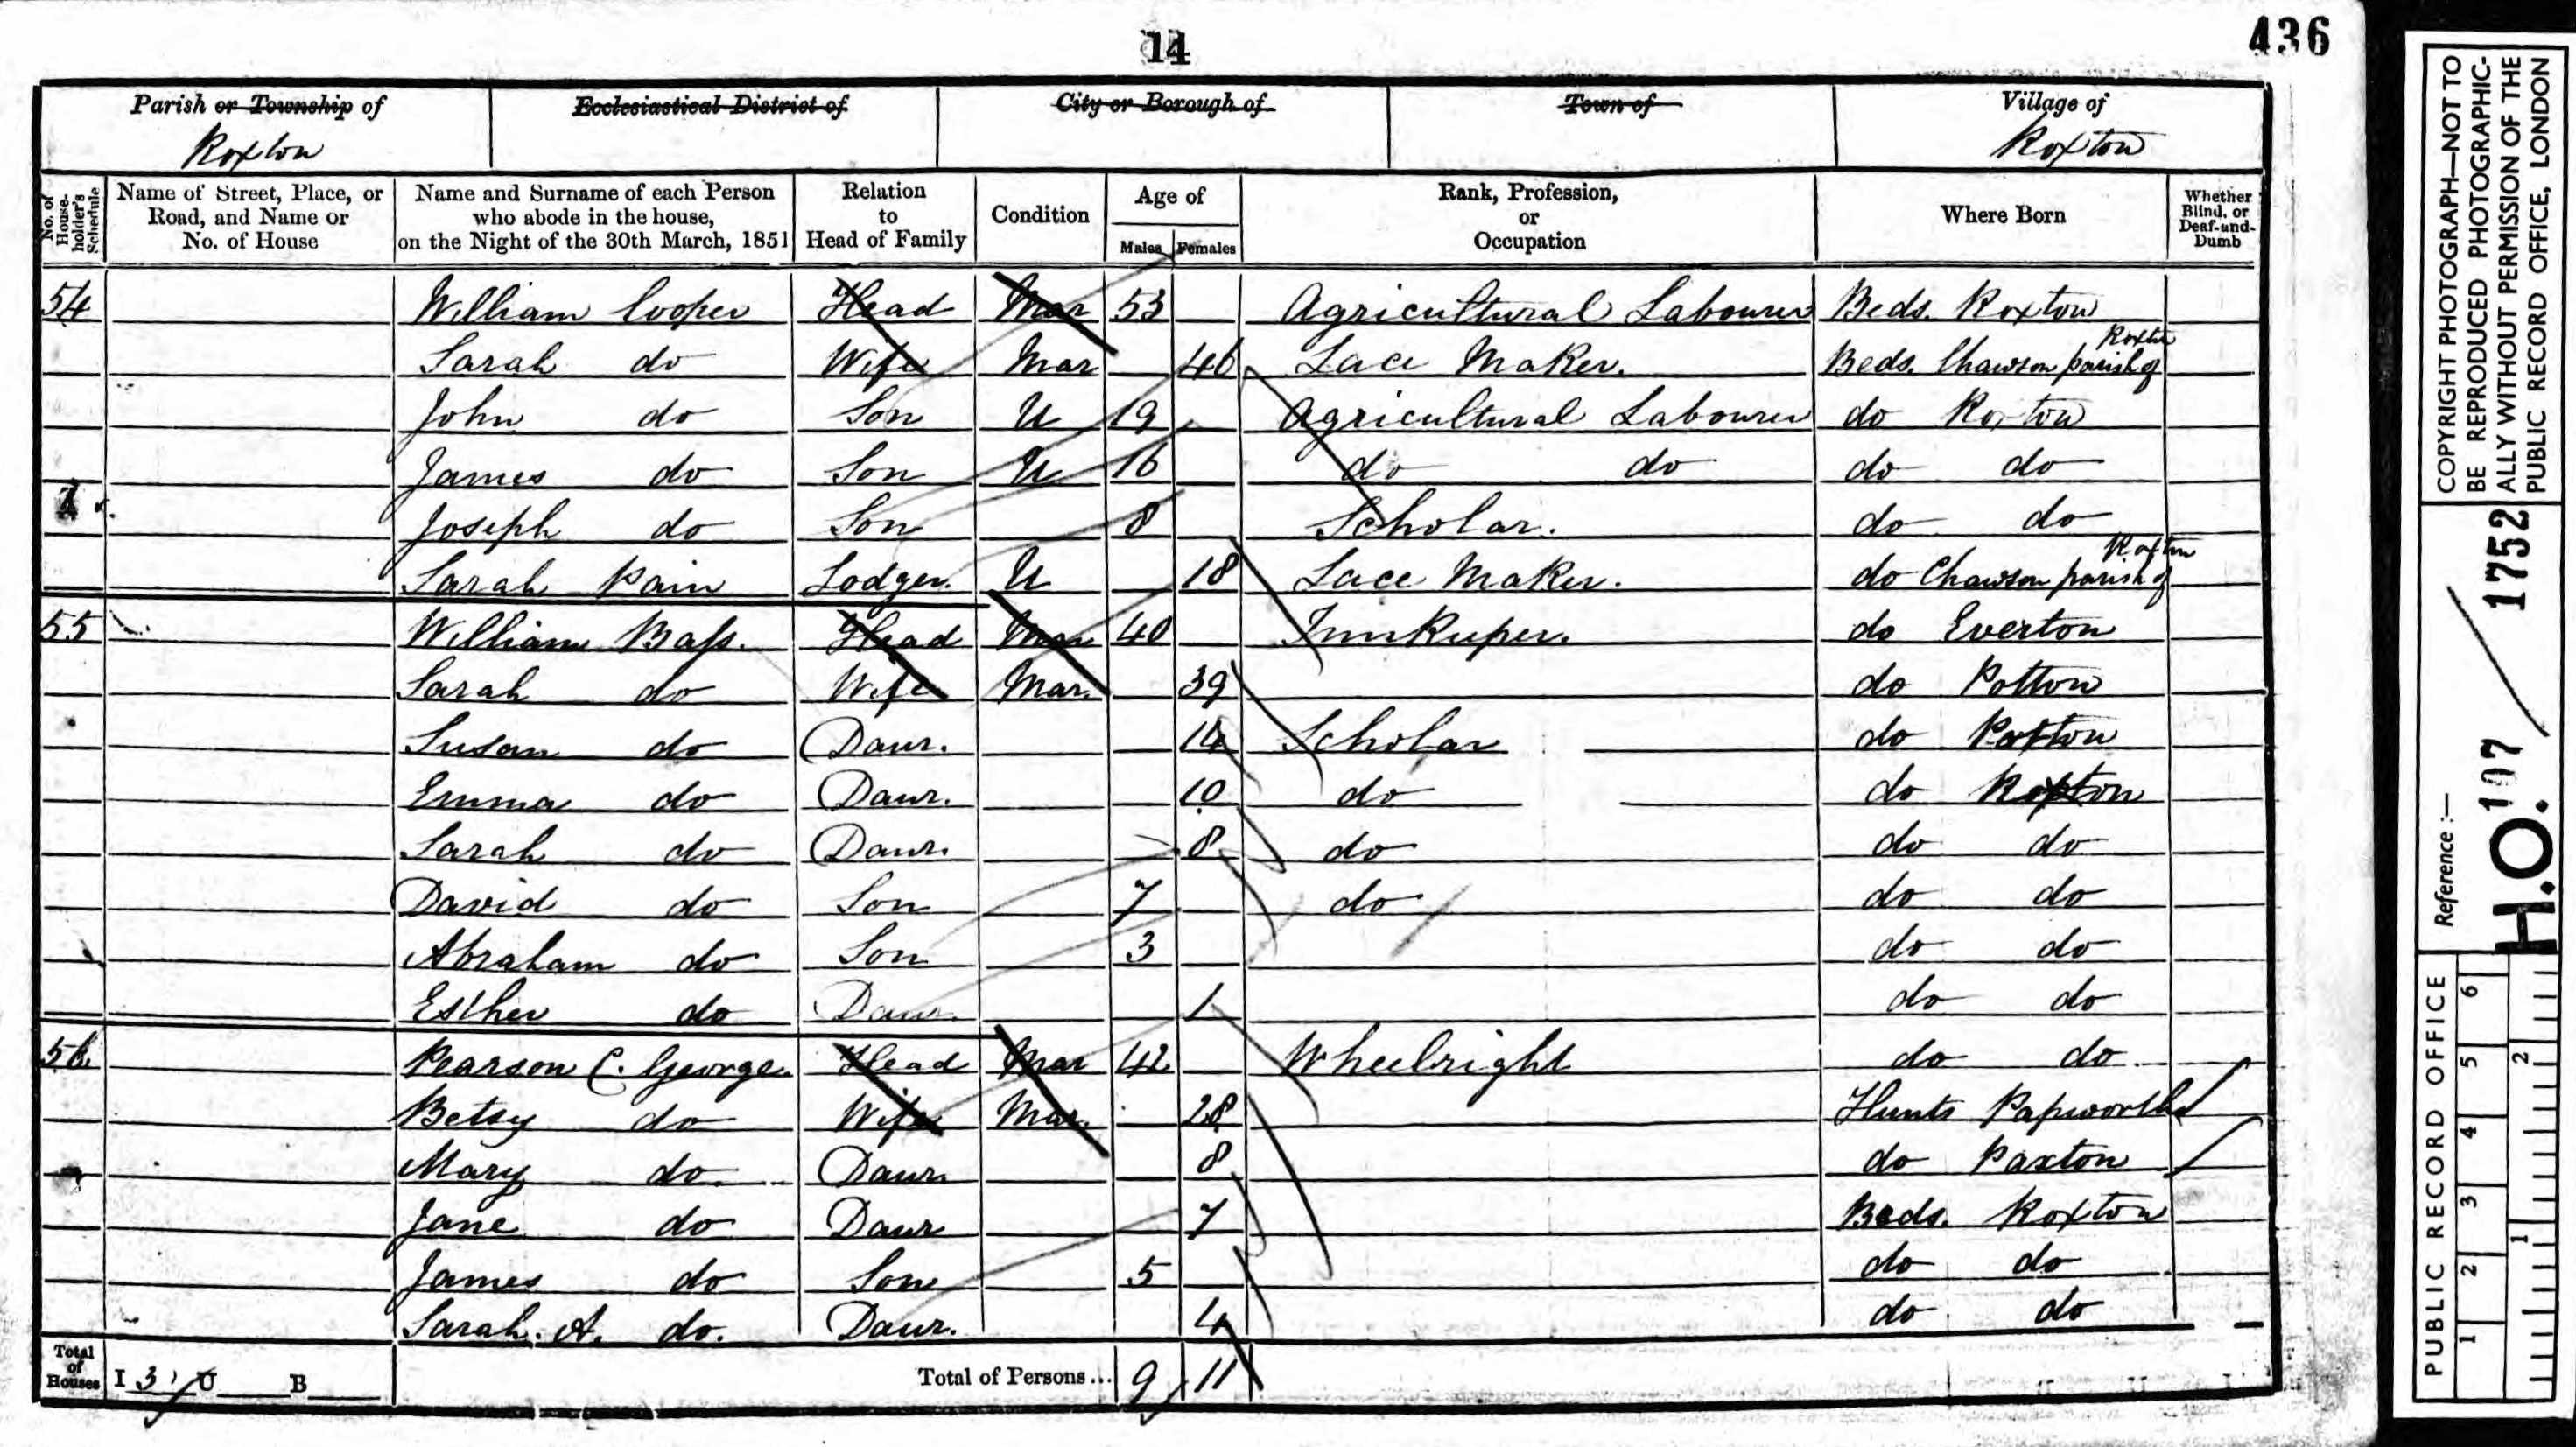 14
436
Parish or Township of
Roxton
Ecclesiastical District of
City or Borough of
Town of
Village of
Roxton
No. of House-holder's Schedule
Name of Street, Place, or Road, and Name or No. of House
Name and Surname of each Person who abode in the house, on the Night of the 30th March, 1851
Relation to Head of Family
Condition
Age of
Males
Females
Rank, Profession, or Occupation
Where Born
Whether Blind, or Deaf-and-Dumb
54 William Cooper Head Mar 53 Agricultural Labourer Beds. Roxton
Sarah do Wife Mar 46 Lace Maker. Beds. Chawson parish of Roxton
John do Son U 19 Agricultural Labourer do Roxton
James do Son U 16 do do do do
Joseph do Son 8 Scholar. do do
Sarah Pain Lodger. U 18 Lace Maker. do Chawson parish of Roxton
55 William Bass. Head Mar 40 Innkeeper. do Everton
Sarah do Wife Mar. 39 do Potton
Susan do Daur. 14 Scholar do
Emma do Daur. 10 do do Roxton
Sarah do Daur. 8 do do do
David do Son 7 do do do
Abraham do Son 3 do do
Esther do Daur. 1 do do
56 Pearson C. George. Head Mar 42 Wheelright do do
Betsy do Wife Mar. 28 Hunts Papworth
Mary do Daur. 8 do Paxton
Jane do Daur 7 Beds. Roxton
James do Son 5 do do
Sarah. A. do. Daur. 4 do do
Total of Houses I 3 U B Total of Persons... 9 11
COPYRIGHT PHOTOGRAPH—NOT TO
BE REPRODUCED PHOTOGRAPHIC-
ALLY WITHOUT PERMISSION OF THE
PUBLIC RECORD OFFICE, LONDON
Reference :—
H.O. 107 / 1752
PUBLIC RECORD OFFICE
1 2 3 4 5 6
1 2